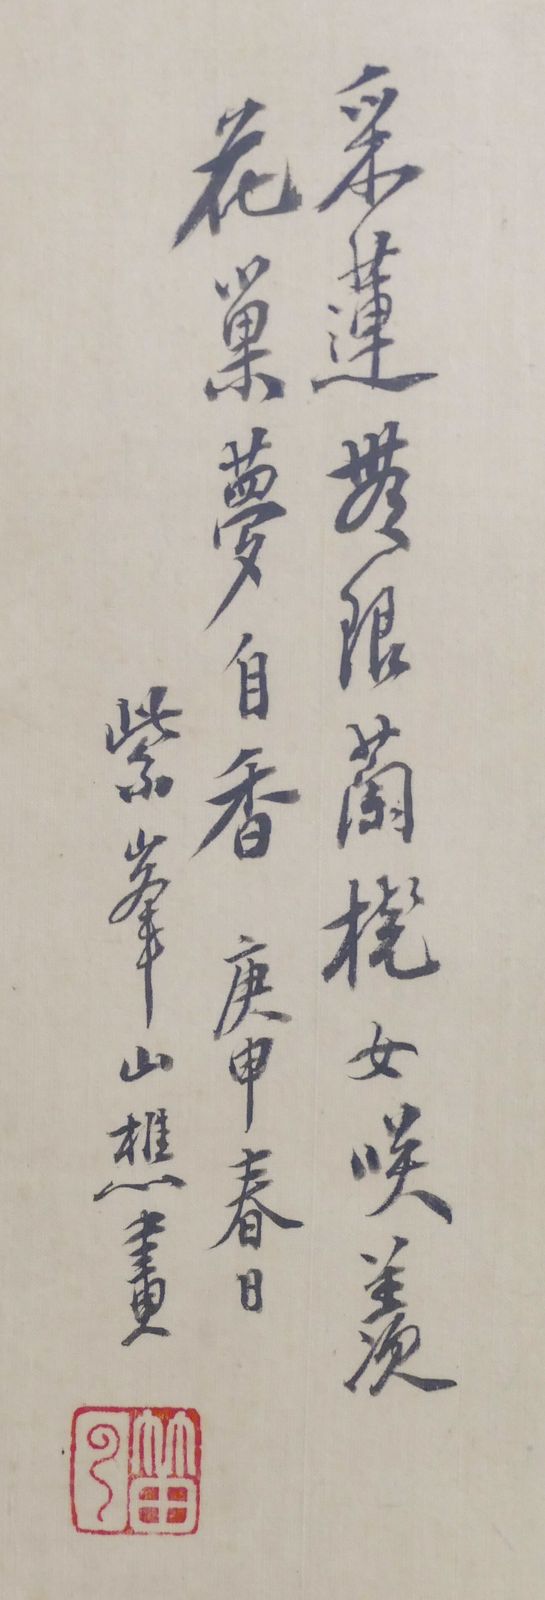 采蓮無限蘭橈女咲羨
花巢夢自香 庚申春日
紫峯山樵畫